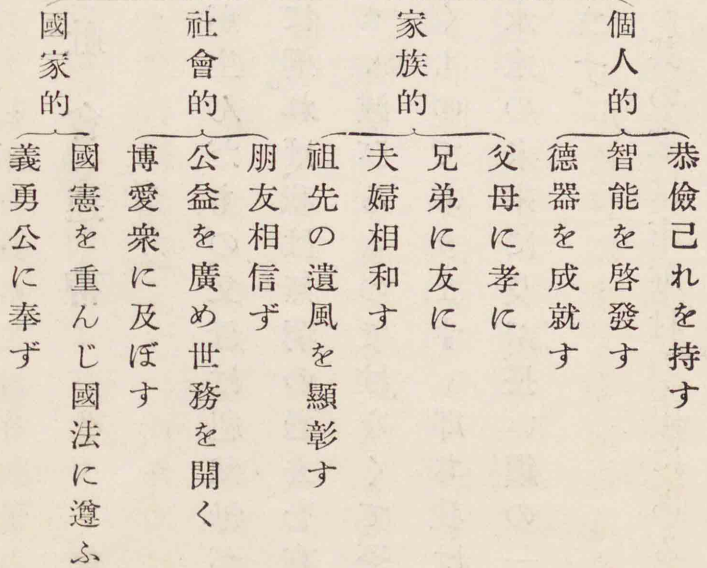 個人的
恭儉己れを持す
智能を啓發す
德器を成就す
家族的
父母に孝に
兄弟に友に
夫婦相和す
祖先の遺風を顯彰す
社會的
朋友相信ず
公益を廣め世務を開く
博愛衆に及ぼす
國家的
國憲を重んじ國法に遵ふ
義勇公に奉ず